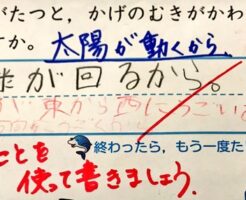 がたつと、かげのむきがかわ
すか。太陽が動くから。
たが回るから。
が東から西にうごい
終わったら，もう一度た
ことを
使って書きましょう。